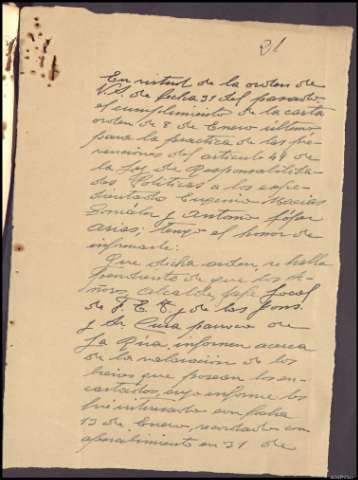 21
En virtud de la orden de
V.S. de fecha 31 del pasado
el cumplimiento de la carta
orden de 8 de Enero último
para la practica de las pre-
venciones del articulo 49 de
la Ley de Responsabilida-
des Politicas a los expe-
dientados Eugenio Macias
González y Antonio López
Arias, tengo el honor de
informarle:
Que dicha orden se halla
pendiente de que los Se-
ñores Alcalde, Jefe Local
de F.E.T. y de las Jons.
y Sr. Cura parroco de
La Rua informen acerca
de la valoracion de los
bienes que posean los en-
cartados, cuyo informe les
fué interesado con fecha
13 de Enero, recordado con
apercibimiento en 31 de